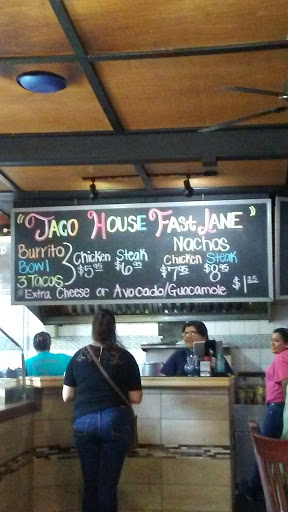 "TACO HOUSE FAST LANE"
Nachos
Burrito
Bowl
3 Tacos
Chicken Steak
$5.95 $6.95
Chicken Steak
$7.95 $8.95
*Extra Cheese or Avocado/Guacamole $1.25